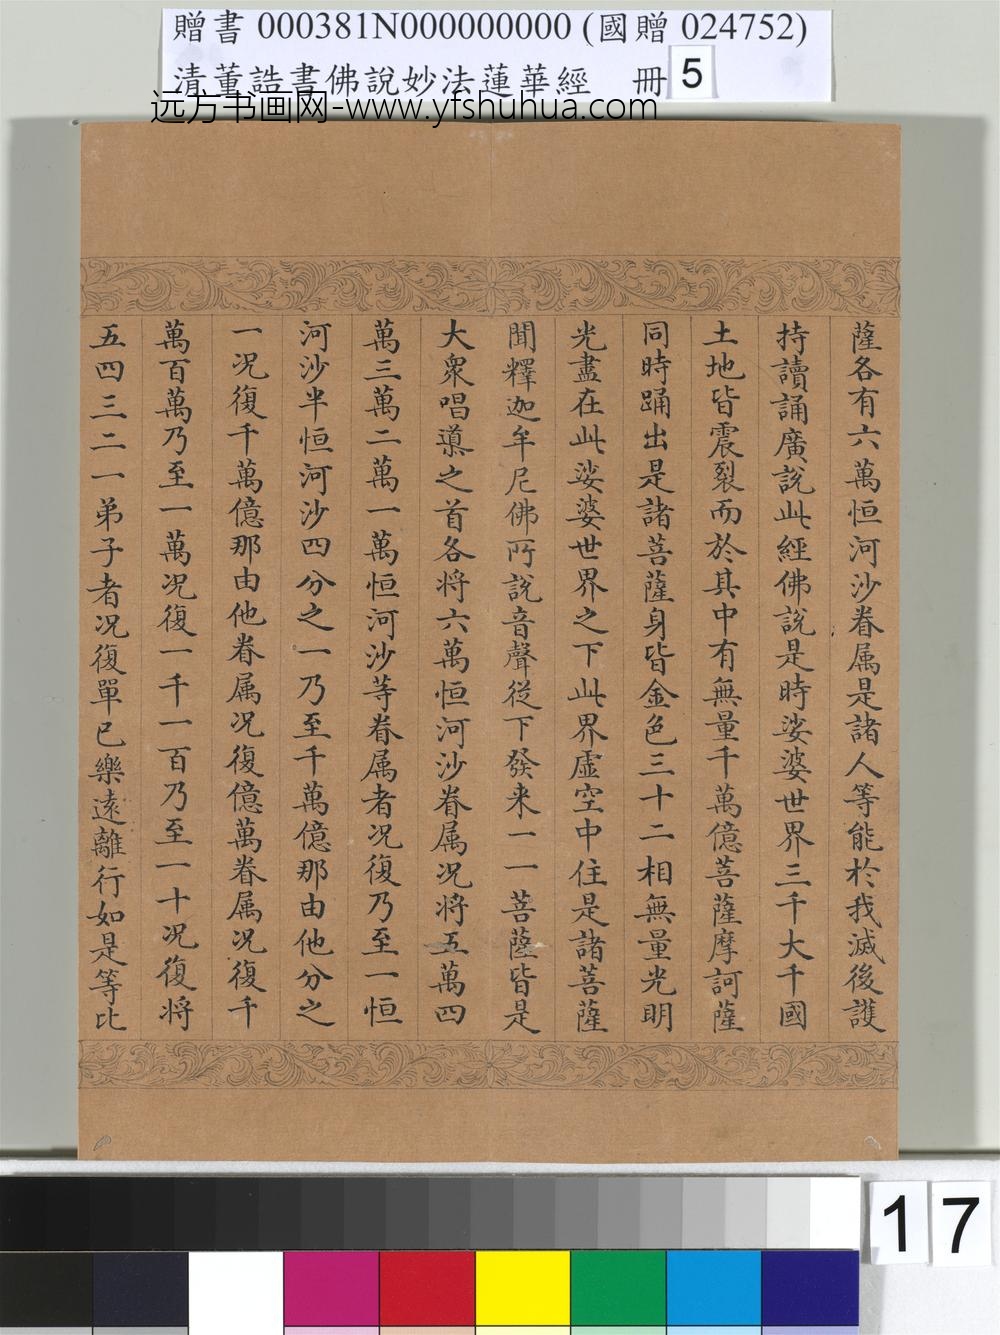 贈書 000381N000000000 (國贈 024752)
清董誥書佛說妙法蓮華經 冊 5
远方书画网-www.yfshuhua.com
薩各有六萬恒河沙眷属是諸人等能於我滅後護
持讀誦廣說此經佛說是時娑婆世界三千大千國
土地皆震裂而於其中有無量千萬億菩薩摩訶薩
同時踊出是諸菩薩身皆金色三十二相無量光明
光盡在此娑婆世界之下此界虛空中住是諸菩薩
聞釋迦牟尼佛所說音聲從下發来一一菩薩皆是
大衆唱導之首各将六萬恒河沙眷属況将五萬四
萬三萬二萬一萬恒河沙等眷属者況復乃至一恒
河沙半恒河沙四分之一乃至千萬億那由他分之
一況復千萬億那由他眷属況復億萬眷属況復千
萬百萬乃至一萬況復一千一百乃至一十況復将
五四三二一弟子者況復單已樂遠離行如是等比
17